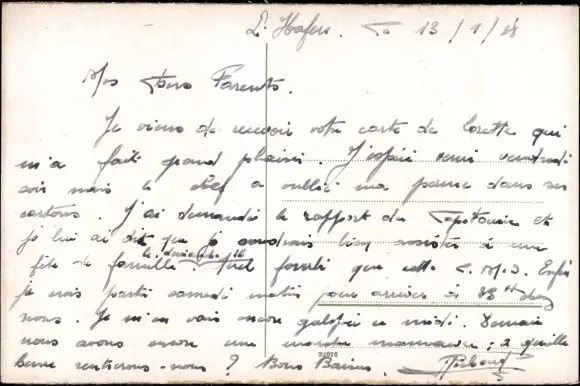 13/1/38
Mes chers Parents.
Je viens de recevoir votre carte de Lorette qui
m'a fait grand plaisir. J'espérais venir vendredi
soir mais le chef a oublié ma dans ses
cartons. J'ai demandé le rapport du Capitaine et
je lui ai dit que je voudrais bien assister à une
le dimanche 16
fête de famille
je serais parti samedi matin pour arriver à
nous. Je m'en vais encore ce midi. Demain
nous avons encore une marche manœuvre ; à quelle
heure rentrerons-nous ? Bons Baisers.